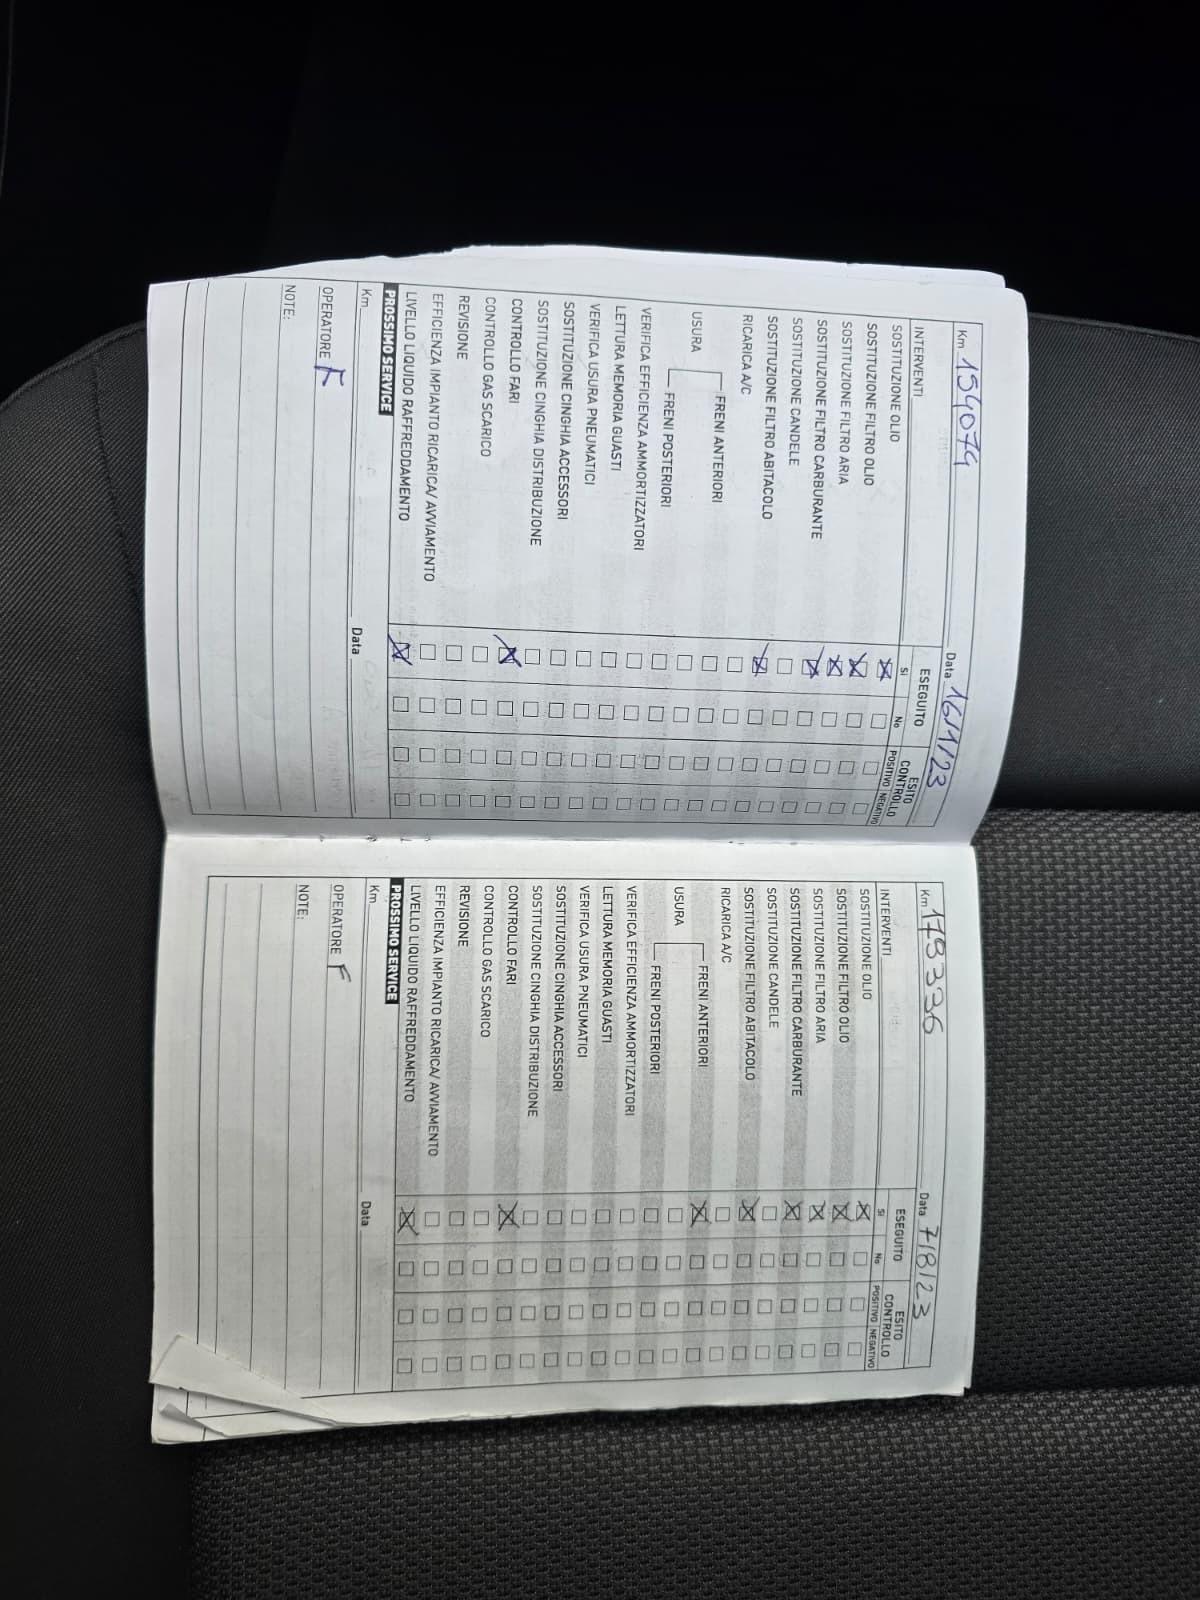 Km 154074 Data 16/1/23
INTERVENTI ESEGUITO ESITO CONTROLLO
SI No POSITIVO NEGATIVO
SOSTITUZIONE OLIO
SOSTITUZIONE FILTRO OLIO
SOSTITUZIONE FILTRO ARIA
SOSTITUZIONE FILTRO CARBURANTE
SOSTITUZIONE CANDELE
SOSTITUZIONE FILTRO ABITACOLO
RICARICA A/C
FRENI ANTERIORI
USURA
FRENI POSTERIORI
VERIFICA EFFICIENZA AMMORTIZZATORI
LETTURA MEMORIA GUASTI
VERIFICA USURA PNEUMATICI
SOSTITUZIONE CINGHIA ACCESSORI
SOSTITUZIONE CINGHIA DISTRIBUZIONE
CONTROLLO FARI
CONTROLLO GAS SCARICO
REVISIONE
EFFICIENZA IMPIANTO RICARICA/ AVVIAMENTO
LIVELLO LIQUIDO RAFFREDDAMENTO
PROSSIMO SERVICE
Km Data
OPERATORE F
NOTE:
Km 179336 Data 7/8/23
INTERVENTI ESEGUITO ESITO CONTROLLO
SI No POSITIVO NEGATIVO
SOSTITUZIONE OLIO
SOSTITUZIONE FILTRO OLIO
SOSTITUZIONE FILTRO ARIA
SOSTITUZIONE FILTRO CARBURANTE
SOSTITUZIONE CANDELE
SOSTITUZIONE FILTRO ABITACOLO
RICARICA A/C
FRENI ANTERIORI
USURA
FRENI POSTERIORI
VERIFICA EFFICIENZA AMMORTIZZATORI
LETTURA MEMORIA GUASTI
VERIFICA USURA PNEUMATICI
SOSTITUZIONE CINGHIA ACCESSORI
SOSTITUZIONE CINGHIA DISTRIBUZIONE
CONTROLLO FARI
CONTROLLO GAS SCARICO
REVISIONE
EFFICIENZA IMPIANTO RICARICA/ AVVIAMENTO
LIVELLO LIQUIDO RAFFREDDAMENTO
PROSSIMO SERVICE
Km Data
OPERATORE F
NOTE: